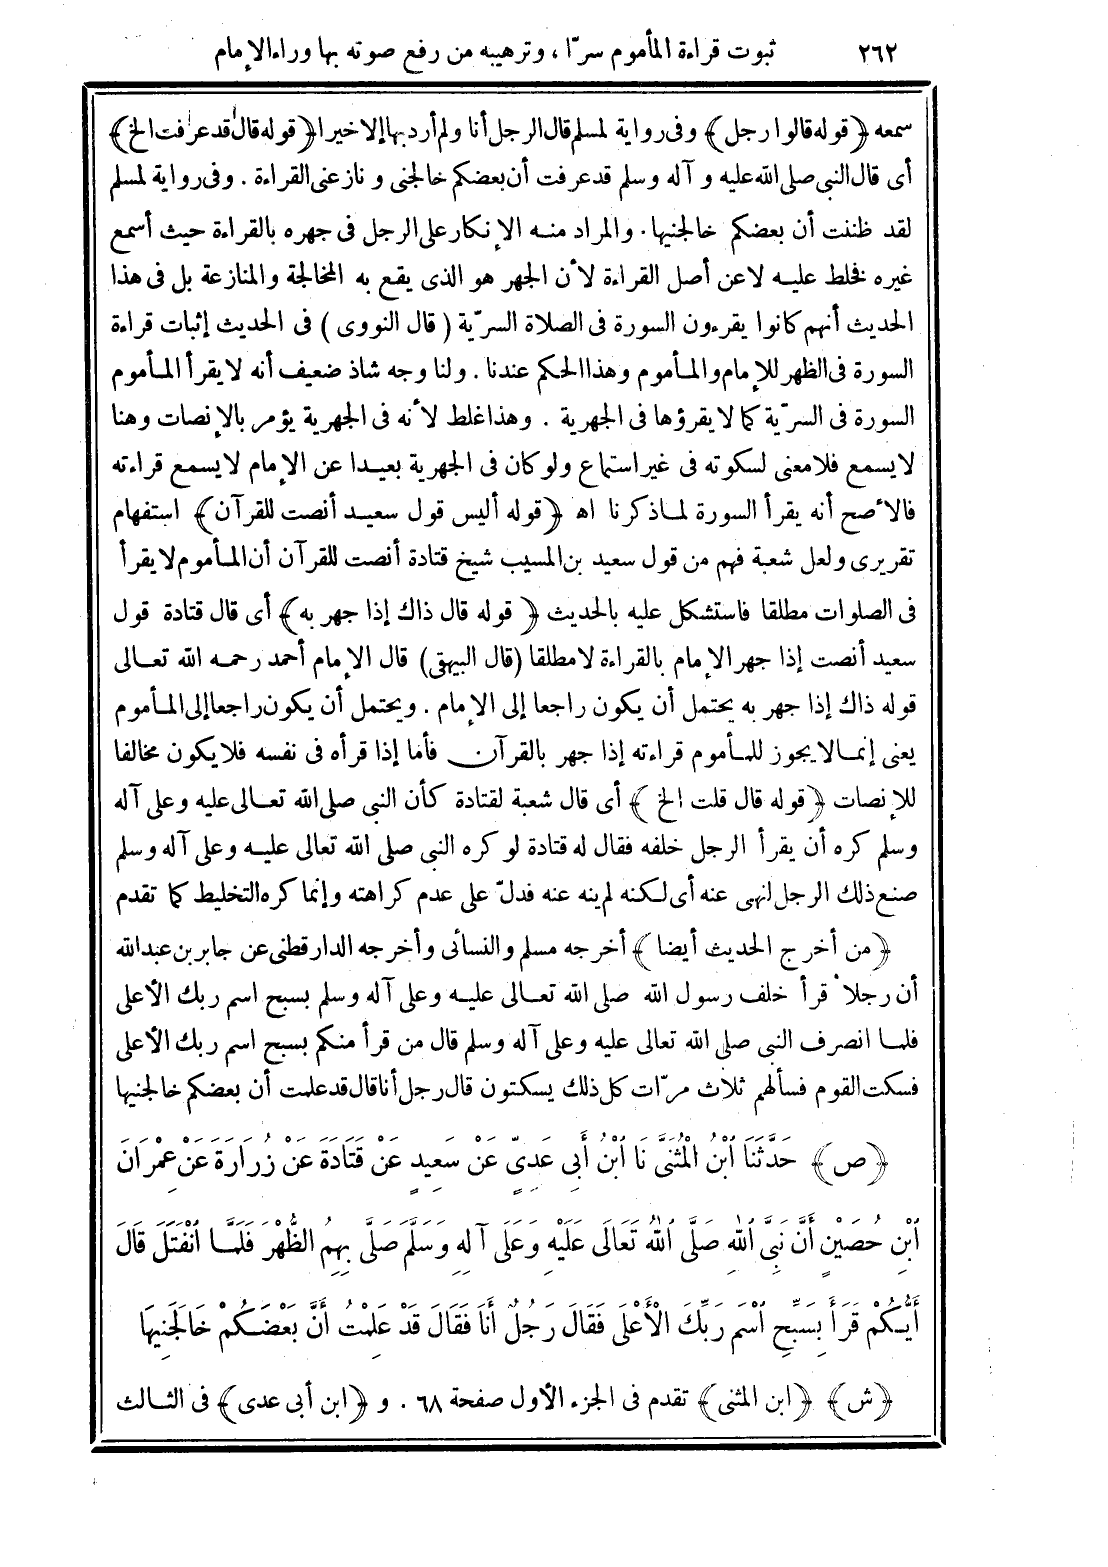 ٢٦٢ ثبوت قراءة المأموم سرّا ، وترهيبه من رفع صوته بها وراء الإمام
سمعه ﴿قوله قالوا رجل﴾ وفى رواية لمسلم قال الرجل أنا ولم أرد بها إلا خيرا ﴿قوله قال قد عرفت الخ﴾
أى قال النبى صلى الله عليه و آله وسلم قد عرفت أن بعضكم خالجنى و نازعنى القراءة . وفى رواية لمسلم
لقد ظننت أن بعضكم خالجنيها . والمراد منه الإنكار على الرجل فى جهره بالقراءة حيث أسمع
غيره فخلط عليه لا عن أصل القراءة لأن الجهر هو الذى يقع به المخالجة والمنازعة بل فى هذا
الحديث أنهم كانوا يقرءون السورة فى الصلاة السرّية ( قال النووى ) فى الحديث إثبات قراءة
السورة فى الظهر للإمام والمأموم وهذا الحكم عندنا . ولنا وجه شاذ ضعيف أنه لا يقرأ المأموم
السورة فى السرّية كما لا يقرؤها فى الجهرية . وهذا غلط لأنه فى الجهرية يؤمر بالإنصات وهنا
لا يسمع فلا معنى لسكوته فى غير استماع ولو كان فى الجهرية بعيدا عن الإمام لا يسمع قراءته
فالأصح أنه يقرأ السورة لما ذكرنا اهـ ﴿قوله أليس قول سعيد أنصت للقرآن﴾ استفهام
تقريرى ولعل شعبة فهم من قول سعيد بن المسيب شيخ قتادة أنصت للقرآن أن المأموم لا يقرأ
فى الصلوات مطلقا فاستشكل عليه بالحديث ﴿قوله قال ذاك إذا جهر به﴾ أى قال قتادة قول
سعيد أنصت إذا جهر الإمام بالقراءة لا مطلقا (قال البيهقى) قال الإمام أحمد رحمه الله تعالى
قوله ذاك إذا جهر به يحتمل أن يكون راجعا إلى الإمام . ويحتمل أن يكون راجعا إلى المأموم
يعنى إنما لا يجوز للمأموم قراءته إذا جهر بالقرآن فأما إذا قرأه فى نفسه فلا يكون مخالفا
للإنصات ﴿قوله قال قلت الخ﴾ أى قال شعبة لقتادة كأن النبى صلى الله تعالى عليه وعلى آله
وسلم كره أن يقرأ الرجل خلفه فقال له قتادة لو كره النبى صلى الله تعالى عليه وعلى آله وسلم
صنع ذلك الرجل لنهى عنه أى لكنه لم ينه عنه فدلّ على عدم كراهته وإنما كره التخليط كما تقدم
﴿من أخرج الحديث أيضا﴾ أخرجه مسلم والنسائى وأخرجه الدارقطنى عن جابر بن عبد الله
أن رجلا قرأ خلف رسول الله صلى الله تعالى عليه وعلى آله وسلم بسبح اسم ربك الأعلى
فلما انصرف النبى صلى الله تعالى عليه وعلى آله وسلم قال من قرأ منكم بسبح اسم ربك الأعلى
فسكت القوم فسألهم ثلاث مرّات كل ذلك يسكتون قال رجل أنا قال قد علمت أن بعضكم خالجنيها
﴿ص﴾ حَدَّثَنَا ابْنُ الْمُثَنَّى نَا ابْنُ أَبِى عَدِىٍّ عَنْ سَعِيدٍ عَنْ قَتَادَةَ عَنْ زُرَارَةَ عَنْ عِمْرَانَ
ابْنِ حُصَيْنٍ أَنَّ نَبِىَّ اللهِ صَلَّى اللهُ تَعَالَى عَلَيْهِ وَعَلَى آلِهِ وَسَلَّمَ صَلَّى بِهِمُ الظُّهْرَ فَلَمَّا انْفَتَلَ قَالَ
أَيُّكُمْ قَرَأَ بِسَبِّحِ اسْمَ رَبِّكَ الْأَعْلَى فَقَالَ رَجُلٌ أَنَا فَقَالَ قَدْ عَلِمْتُ أَنَّ بَعْضَكُمْ خَالَجَنِيهَا
﴿ش﴾ ﴿ابن المثنى﴾ تقدم فى الجزء الأول صفحة ٦٨ . و ﴿ابن أبى عدى﴾ فى الثالث